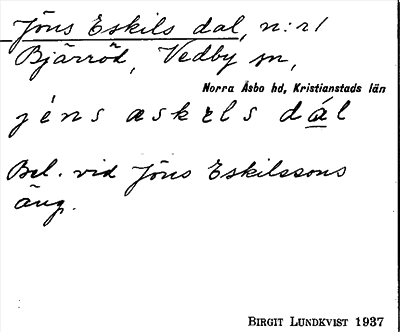 Jöns Eskils dal, n:r 1
Bjärröd, Vedby sn,
Norra Åsbo hd, Kristianstads län
jéns æskels dál
Bel. vid Jöns Eskilssons
äng.
BIRGIT LUNDKVIST 1937